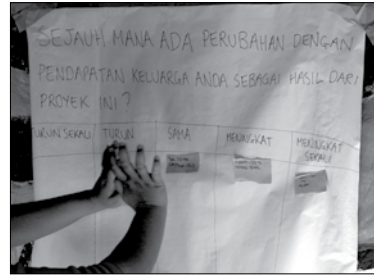 SEJAUH MANA ADA PERUBAHAN DENGAN
PENDAPATAN KELUARGA ANDA SEBAGAI HASIL DARI
PROYEK INI?
TURUN SEKALI TURUN SAMA MENINGKAT MENINGKAT SEKALI